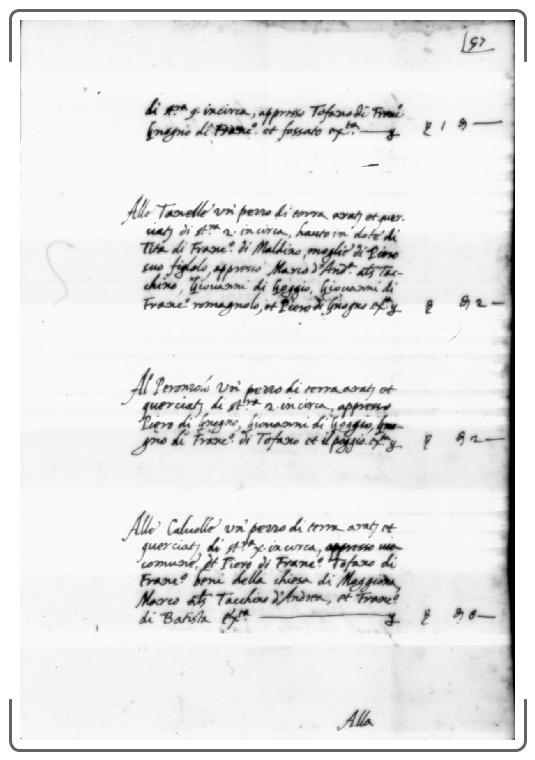 57
di st.ra 9. incirca, appresso Tofano di Franc.o
Gnogno di Franc.o et fossato ex.ta
Alle Tavelle un' pezzo di terra arat. et quer-
ciat. di st.ra 2. incirca, hauto in dote di
Tita di Franc.o di Maldino, moglie di Piero
suo figlolo, appresso Marco d'And.a als Tac-
chino, Giovanni di Goggio, Giovanni di
Franc.o romagnolo, et Piero di Gnogno ex.ta 2
Al un' pezzo di terra arat. et
querciat. di st.ra 2. incirca, appresso
Piero di Gnogno, Giovanni di Goggio, Gno-
gno di Franc.o di Tofano et il poggio ex.ta 2
Alle Calvelle un' pezzo di terra arat. et
querciat. di st.ra x. incirca, appresso via
comune, et Piero di Franc.o Tofano di
Franc.o beni della chiesa di Moggiona,
Marco als Tacchino d'Andrea, et Franc.o
di Batista ex.ta
Alla